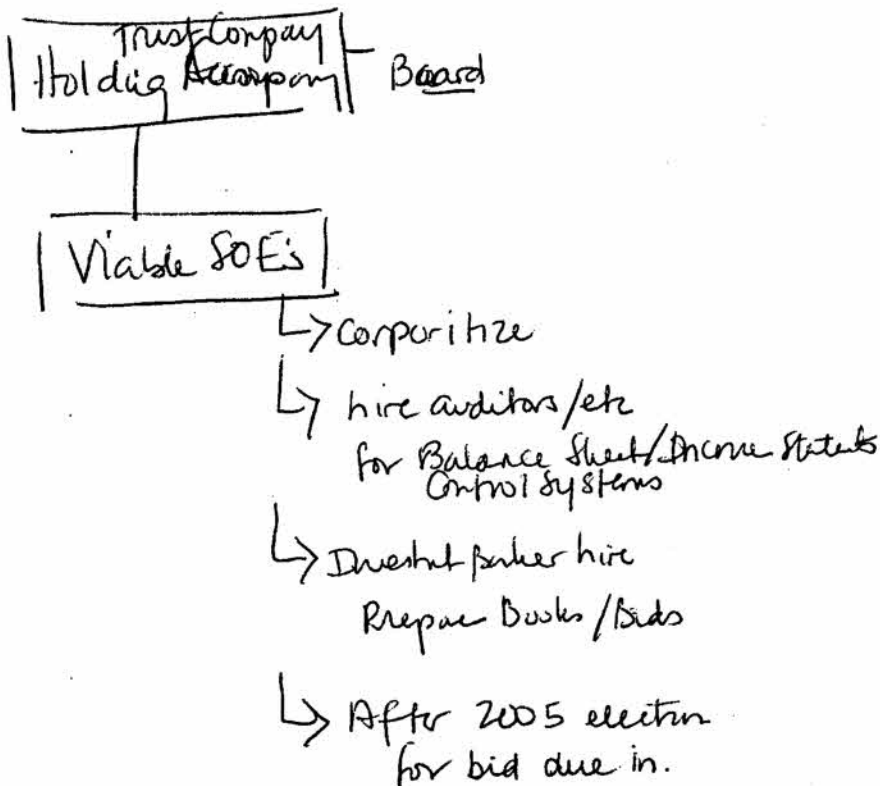 Trust Conpay
Holdig Accompany
Board
Viable SOE's
Corporitize
hire auditors/etc
for Balance Sheet/Income Statents
Control Systems
Investnt banker hire
Prepae Books/Bids
After 2005 election
for bid due in.